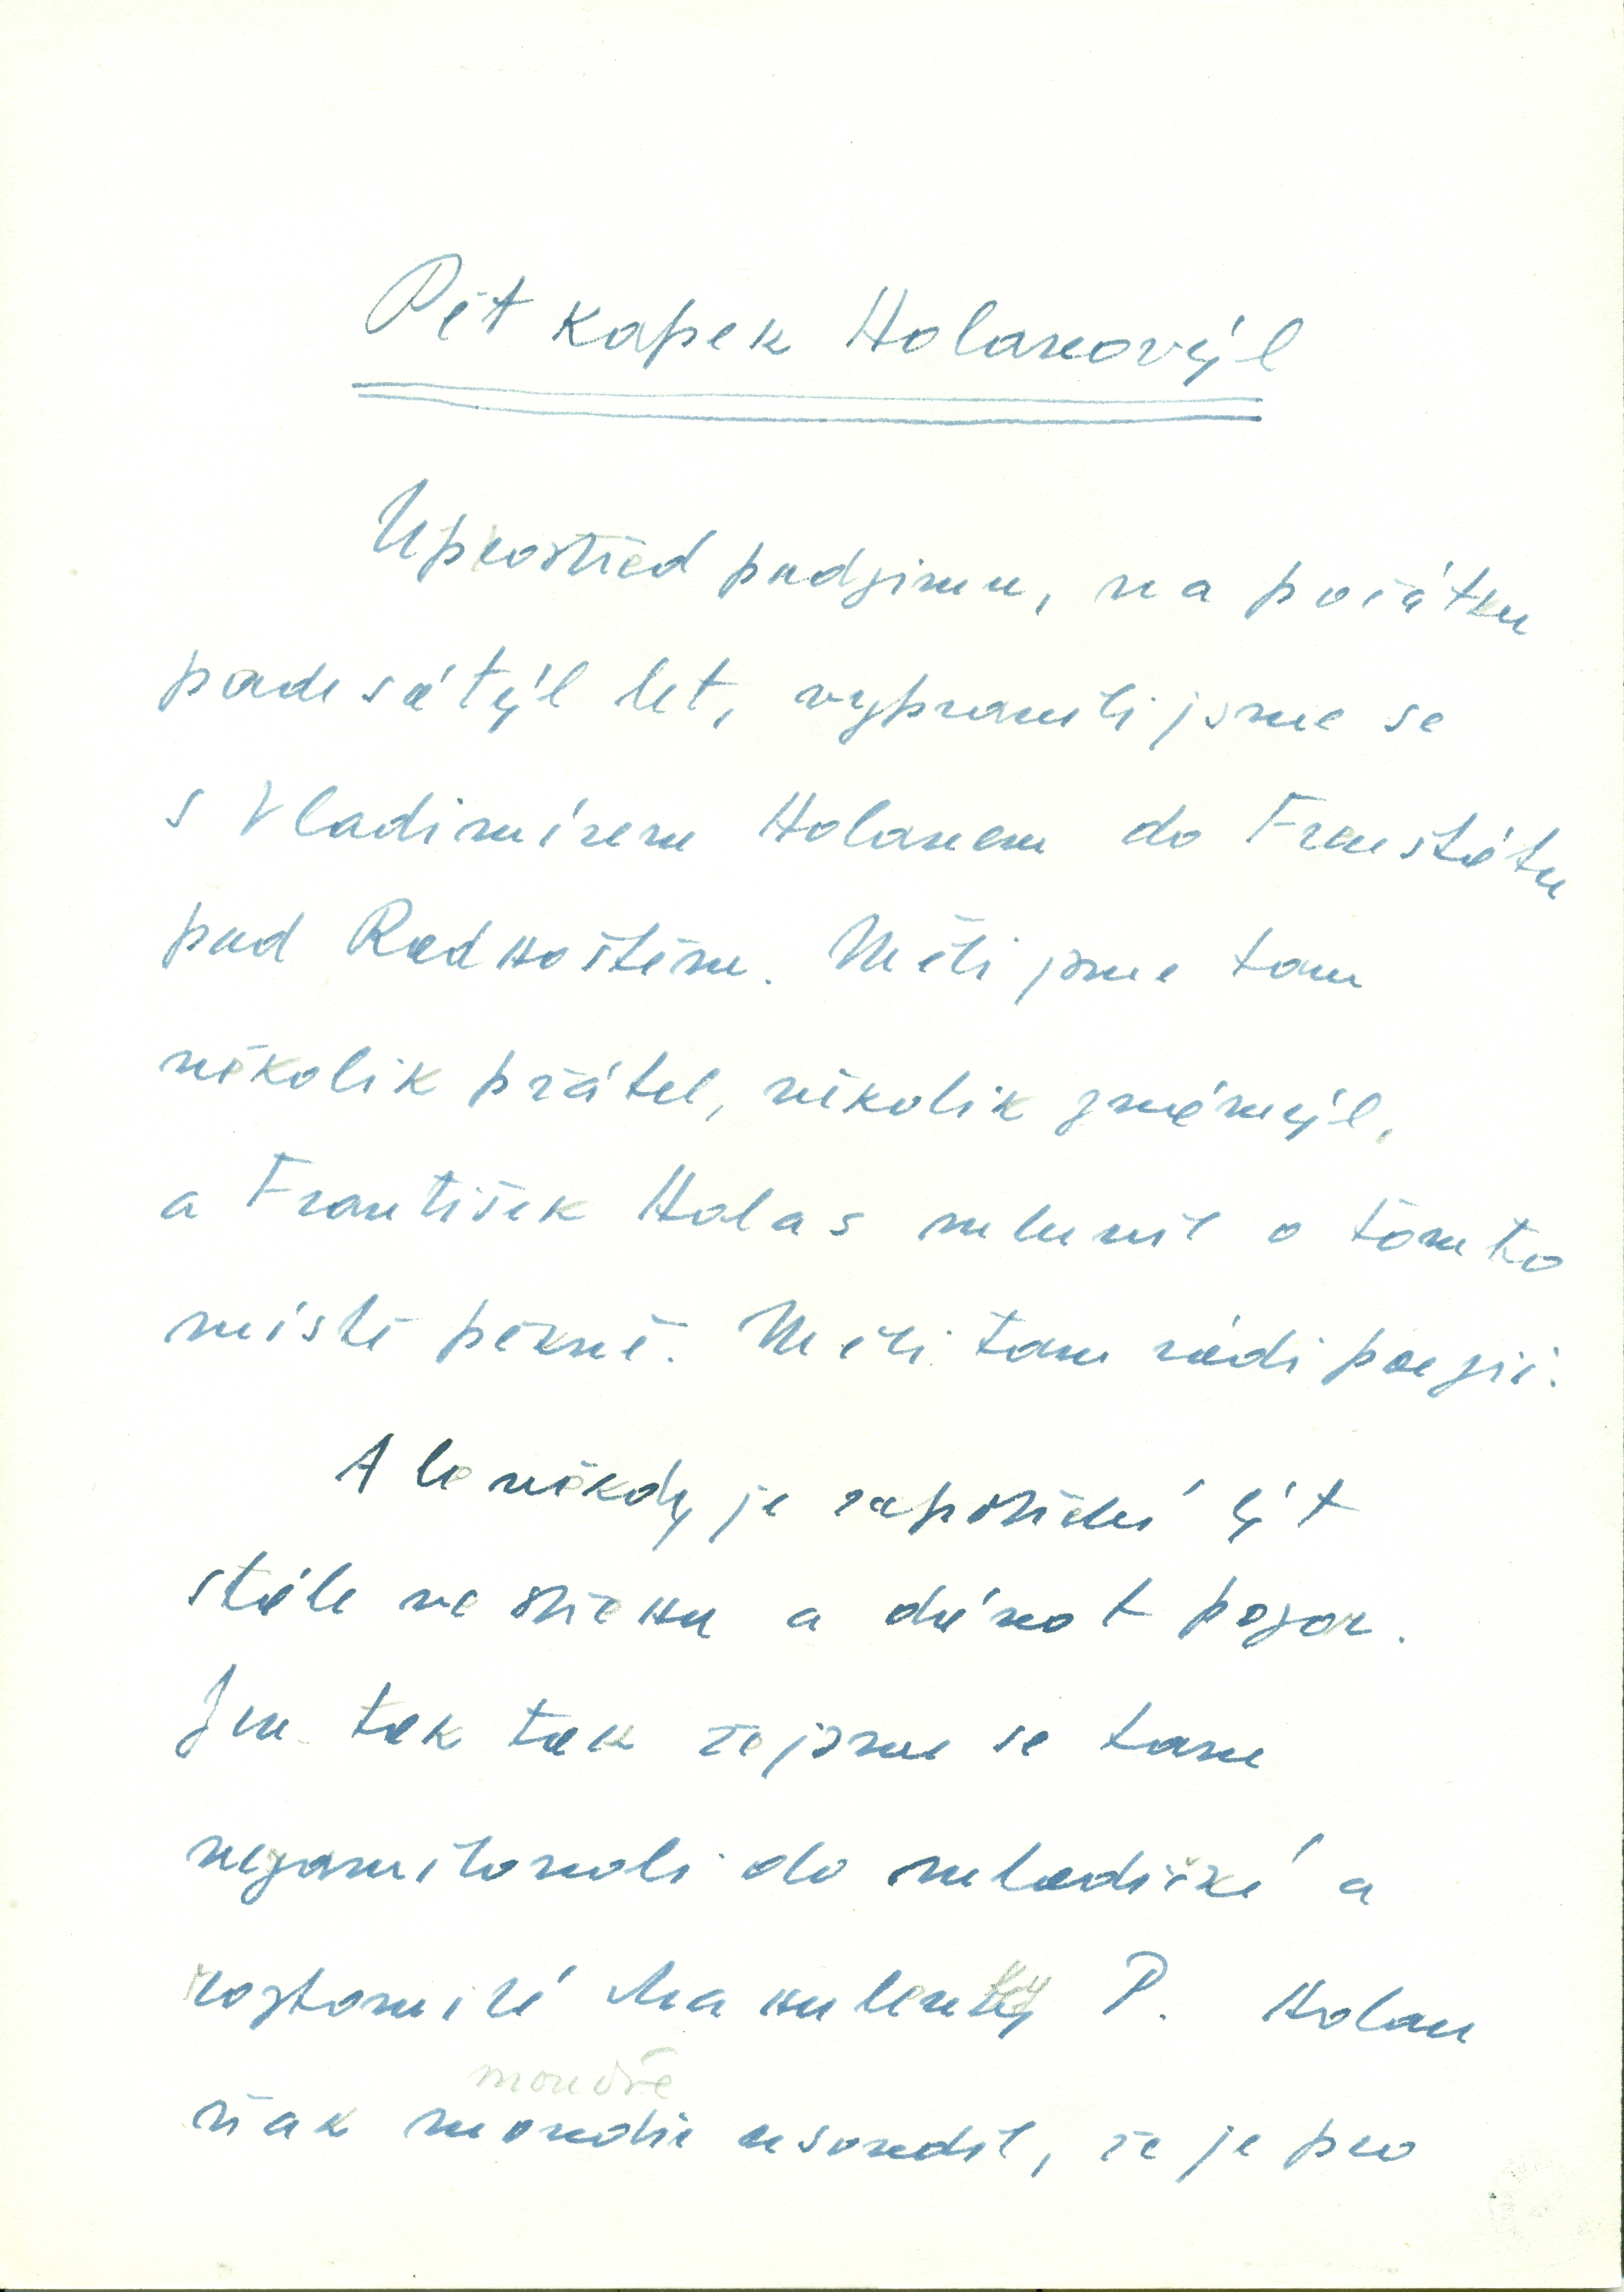 Pět kapek Holanových
Uprostřed podzimu, na počátku
padesátých let, vypravili jsme se
s Vladimírem Holanem do Frenštátu
pod Radhoštěm. Měli jsme tam
několik přátel, několik známých,
a František Halas mluvil o tomto
místě pěkně. Měli tam rádi poezii.
Ale někdy je zapotřebí být
stále ve střehu a dávat pozor.
Jen tak tak že jsme se tam
nezamilovali do mladičké a
roztomilé Mahulenky P. Holan
moudře
však moudře usoudil, že je pro